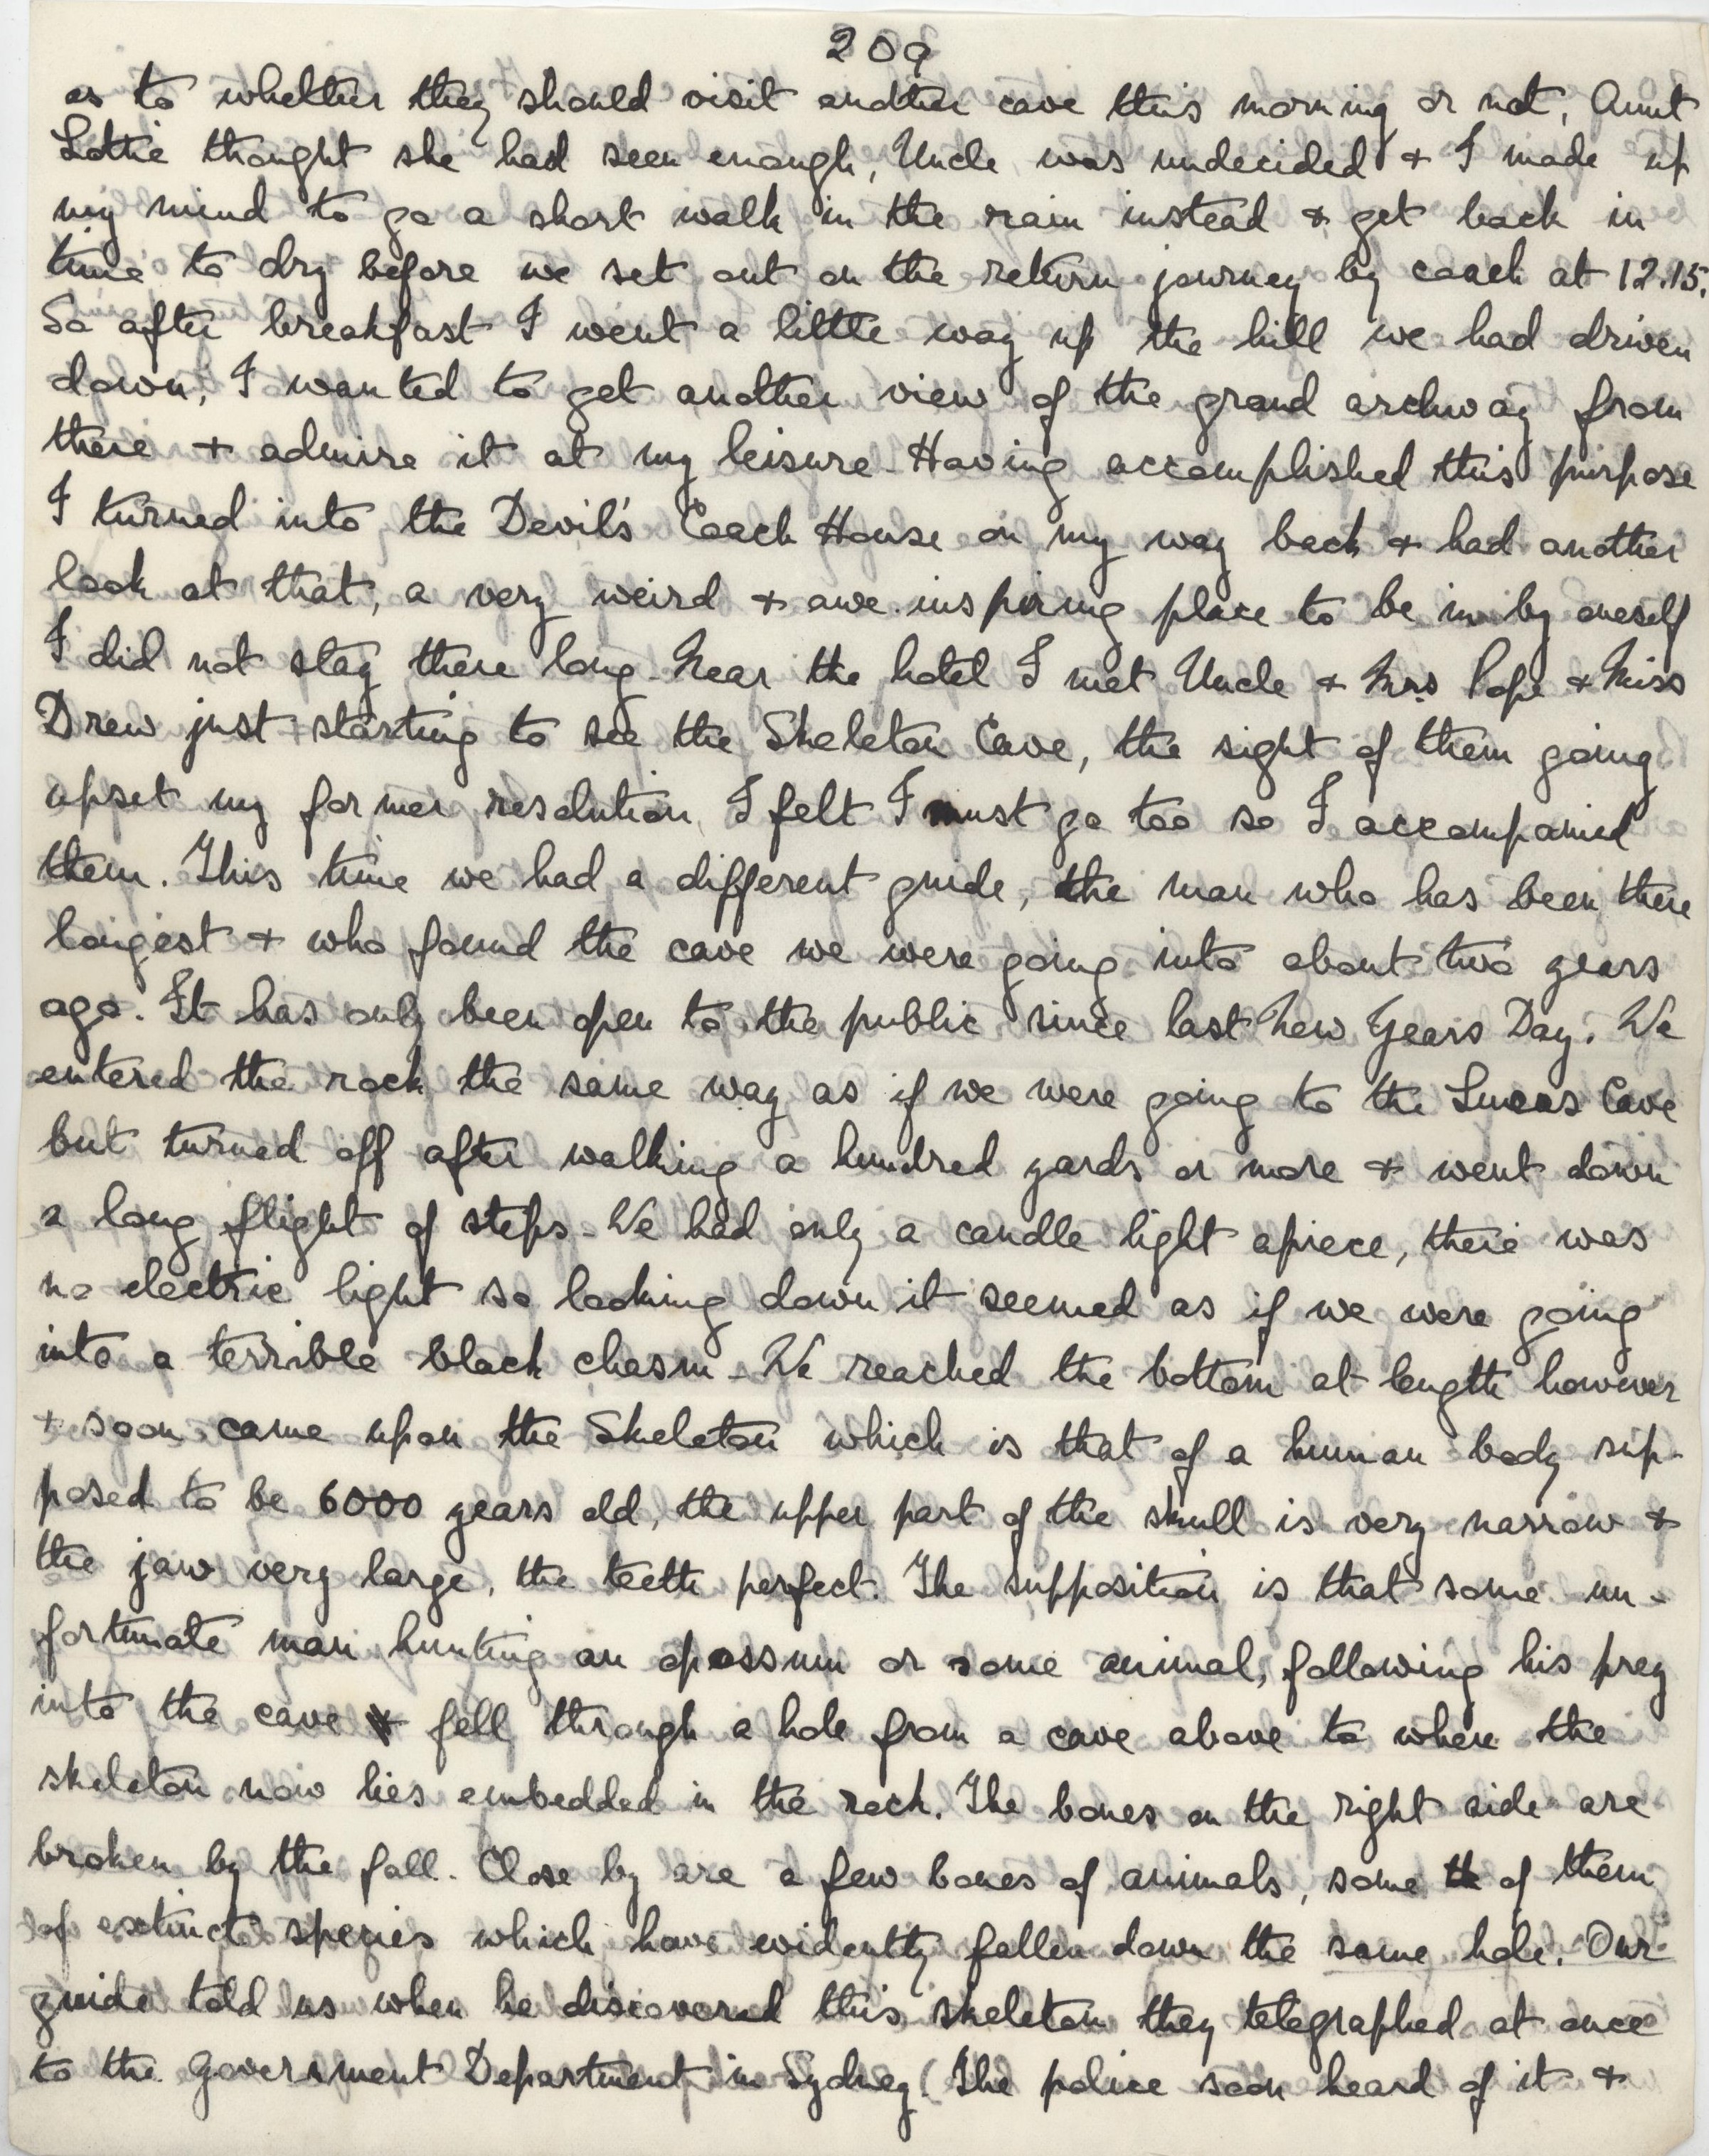 209
as to whether they should visit another cave this morning or not, Aunt
Lottie thought she had seen enough, Uncle was undecided + I made up
my mind to go a short walk in the rain instead + get back in
time to dry before we set out on the return journey by coach at 12.15.
So after breakfast I went a little way up the hill we had driven
down, I wanted to get another view of the grand archway from
there + admire it at my leisure. Having accomplished this purpose
I turned into the Devil's Coach House on my way back + had another
look at that, a very weird + awe inspiring place to be in by oneself
I did not stay there long. Near the hotel I met Uncle + Mrs Pope + Miss
Drew just starting to see the Skeleton Cave, the sight of them going
upset my former resolution, I felt I must go too so I accompanied
them. This time we had a different guide, the man who has been there
longest + who found the cave we were going into about two years
ago. It has only been open to the public since last New Years Day. We
entered the rock the same way as if we were going to the Lucas Cave
but turned off after walking a hundred yards or more + went down
a long flight of steps - We had only a candle light apiece, there was
no electric light so looking down it seemed as if we were going
into a terrible black chasm - We reached the bottom at length however
+ soon came upon the Skeleton which is that of a human body sup-
posed to be 6000 years old, the upper part of the skull is very narrow +
the jaw very large, the teeth perfect. The supposition is that some un-
fortunate man hunting an opossum or some animal, following his prey
into the cave + fell through a hole from a cave above to where the
skeleton now lies embedded in the rock. The bones on the right side are
broken by the fall. Close by are a few bones of animals, some th of them
of extinct species which have evidently fallen down the same hole. Our
guide told us when he discovered this skeleton they telegraphed at once
to the Government Department in Sydney. (The police soon heard of it +